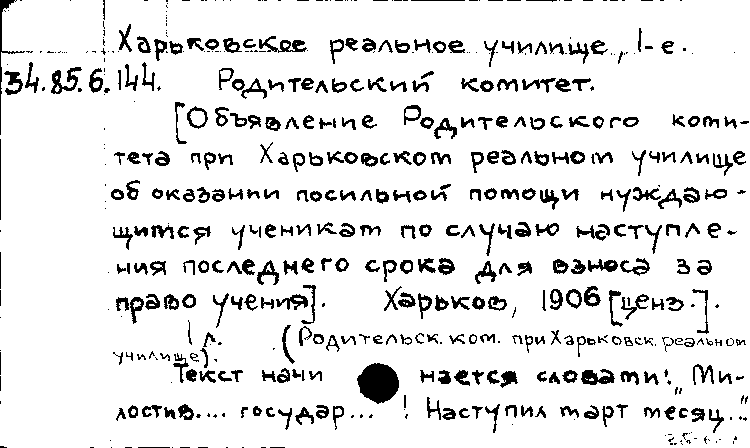 Харьковское реальное училище, 1-е.
34.85.6.144. Родительский комитет.
[Объявление Родительского коми-
тета при Харьковском реальном училище
об оказании посильной помощи нуждаю-
щимся ученикам по случаю наступле-
ния последнего срока для взноса за
право учения]. Харьков, 1906 [ценз.].
1 л. (Родительск. ком. при Харьковск. реальном
училище).
Текст начи нается словами: „Ми-
лостив.... государ... ! Наступил март месяц..."